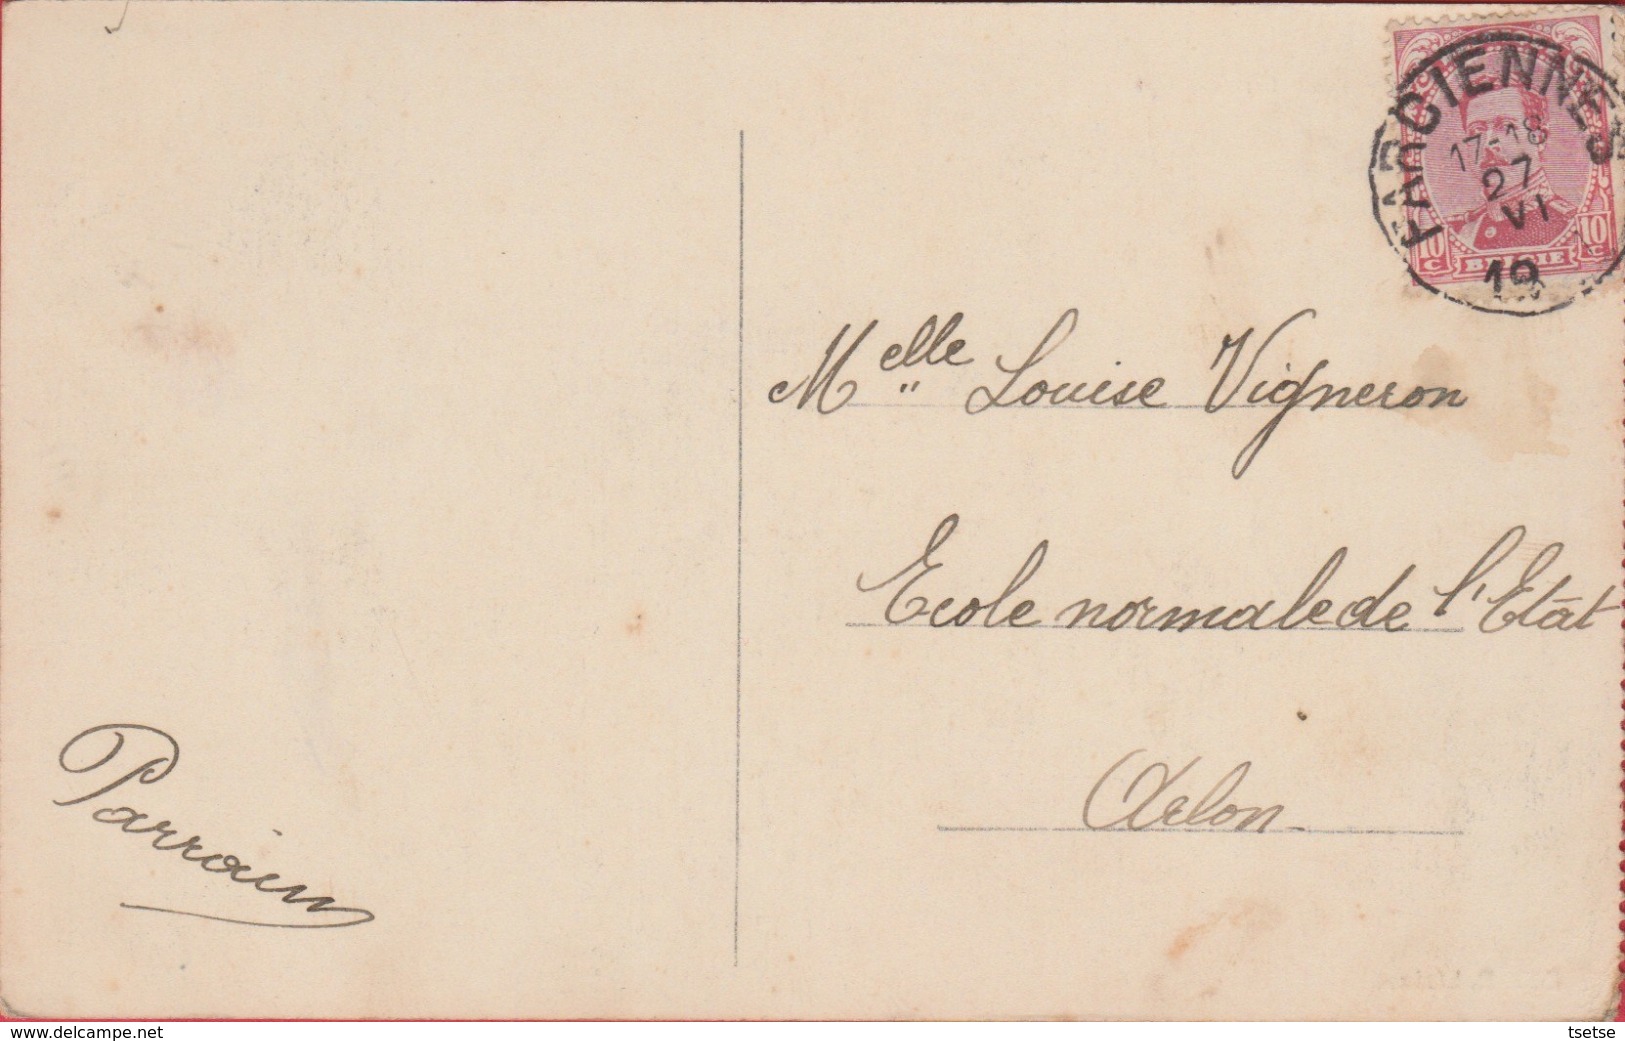 FARCIENNES
17-18
27
VI
19
10 C BELGIE 10 C
Melle Louise Vigneron
Ecole normale de l'Etât
Arlon
Parrain
www.delcampe.net
tsetse